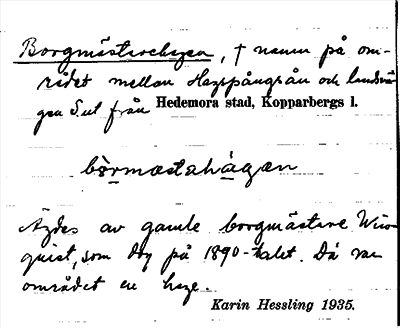 Borgmästarehagen, † namn på om-
rådet mellan Hoppångsån och landsvä-
gen S. ut från Hedemora stad, Kopparbergs l.
bòrmæstahágæn
Ägdes av gamle borgmästare Win-
quist, som dog på 1890-talet. Då var
området en hage.
Karin Hessling 1935.